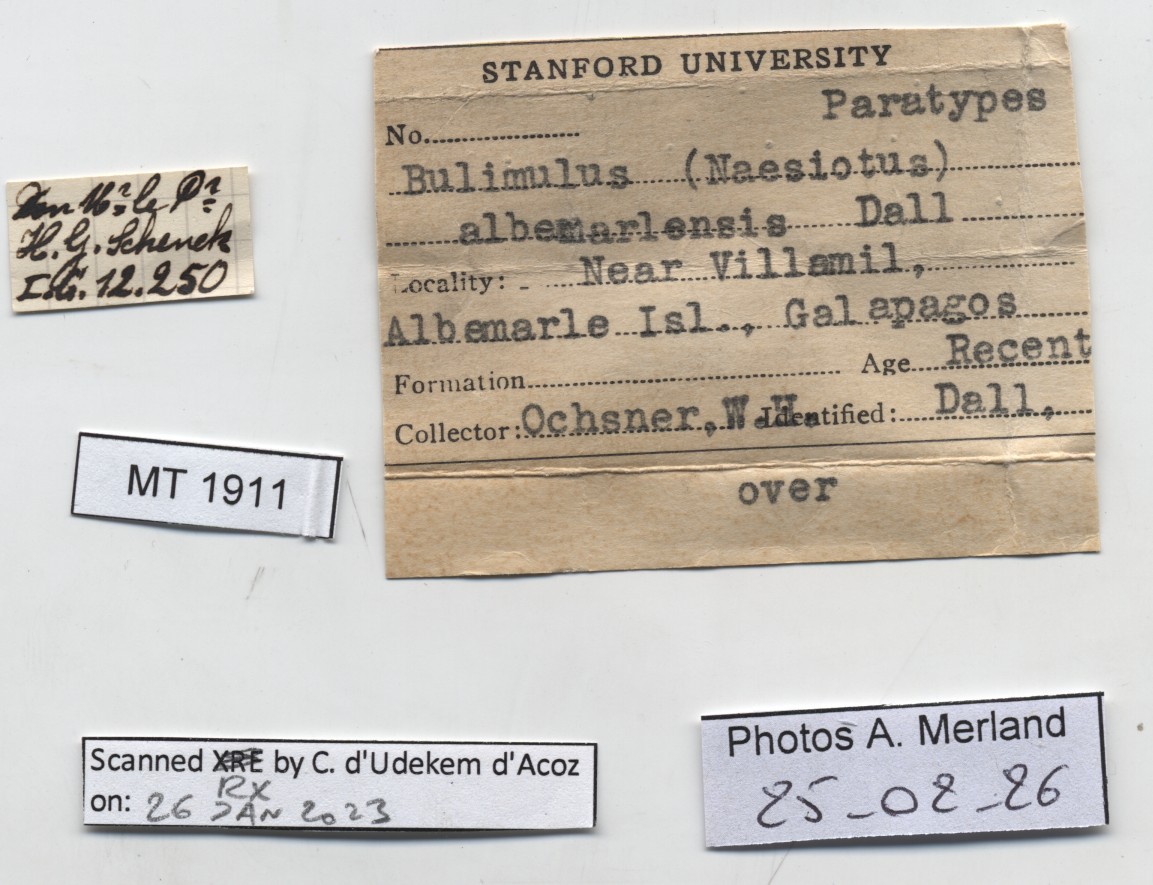 STANFORD UNIVERSITY
Paratypes
No.
Bulimulus (Naesiotus)
albemarlensis Dall
Locality: Near Villamil,
Albemarle Isl., Galapagos
Formation Age Recent
Collector: Ochsner, W.H. Identified: Dall,
over
Don Mr. le Dr.
H.G. Schenck
I.G. 12.250
MT 1911
Scanned XRE by C. d'Udekem d'Acoz
RX
on: 26 JAN 2023
Photos A. Merland
25-02-26